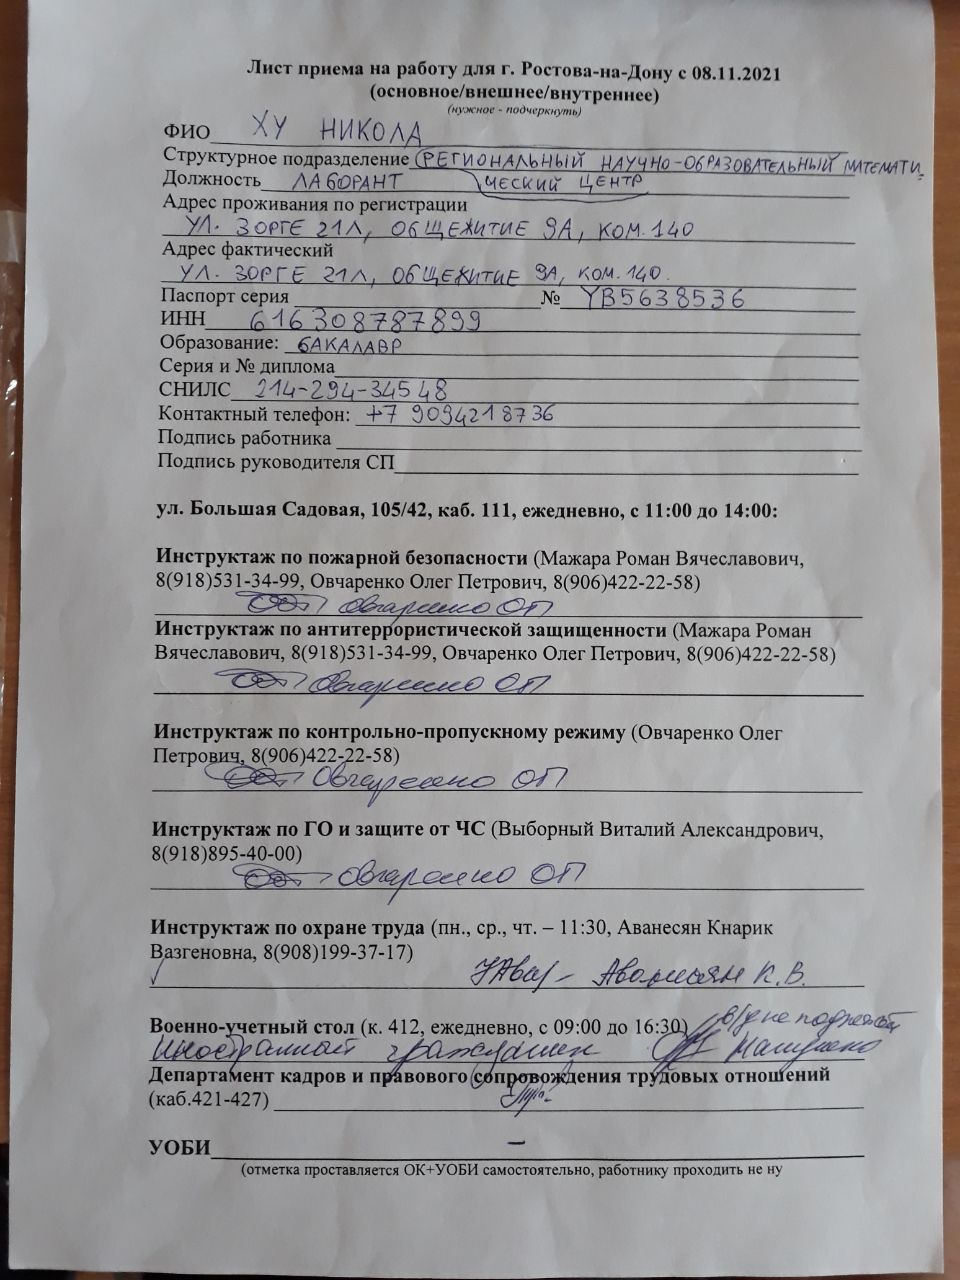 Лист приема на работу для г. Ростова-на-Дону с 08.11.2021
(основное/внешнее/внутреннее)
(нужное - подчеркнуть)
ФИО ХУ НИКОЛА
Структурное подразделение РЕГИОНАЛЬНЫЙ НАУЧНО-ОБРАЗОВАТЕЛЬНЫЙ МАТЕМАТИ-
Должность ЛАБОРАНТ ЧЕСКИЙ ЦЕНТР
Адрес проживания по регистрации
УЛ. ЗОРГЕ 21Л, ОБЩЕЖИТИЕ 9А, КОМ. 140
Адрес фактический
УЛ. ЗОРГЕ 21Л, ОБЩЕЖИТИЕ 9А, КОМ. 140.
Паспорт серия № YB5638536
ИНН 616308787899
Образование: БАКАЛАВР
Серия и № диплома
СНИЛС 214-294-345 48
Контактный телефон: +7 9094218736
Подпись работника
Подпись руководителя СП
ул. Большая Садовая, 105/42, каб. 111, ежедневно, с 11:00 до 14:00:
Инструктаж по пожарной безопасности (Мажара Роман Вячеславович,
8(918)531-34-99, Овчаренко Олег Петрович, 8(906)422-22-58)
Овчаренко ОП
Инструктаж по антитеррористической защищенности (Мажара Роман
Вячеславович, 8(918)531-34-99, Овчаренко Олег Петрович, 8(906)422-22-58)
Овчаренко ОП
Инструктаж по контрольно-пропускному режиму (Овчаренко Олег
Петрович, 8(906)422-22-58)
Овчаренко ОП
Инструктаж по ГО и защите от ЧС (Выборный Виталий Александрович,
8(918)895-40-00)
Овчаренко ОП
Инструктаж по охране труда (пн., ср., чт. – 11:30, Аванесян Кнарик
Вазгеновна, 8(908)199-37-17)
Аванесян К.В.
Военно-учетный стол (к. 412, ежедневно, с 09:00 до 16:30) в/у не подлежит
Иностранный гражданин
Департамент кадров и правового сопровождения трудовых отношений
(каб.421-427)
УОБИ –
(отметка проставляется ОК+УОБИ самостоятельно, работнику проходить не ну